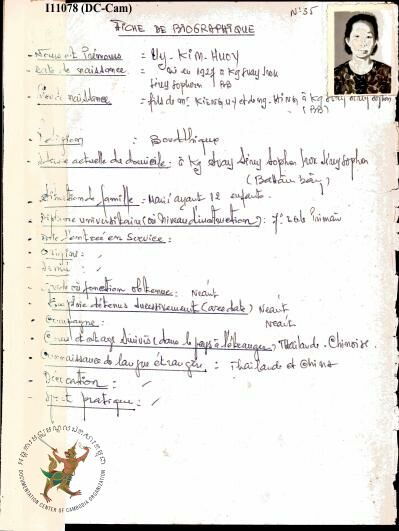 I11078 (DC-Cam)
N° 35
FICHE DE BIOGRAPHIQUE
- Noms et Prénoms : Uy - KIM - HUOY
- Date de naissance : en 1927 à Kg Svay Srok
Sereysophon (BB)
- naissance : fils de mr. KIENG UY et de mg. à Kg Svay
(BB)
- Religion : Bouddhique
- actuelle du domicile : à Kg Svay Srok Sereysophon
(Battambang)
- Situation de famille : Marié ayant 12 enfants.
- Diplôme universitaire (ou Niveau d'instruction) : 7è Primaire
- Date d'entrée en Service :
- Origine :
- Grade ou fonction obtenue : Neant
- Emploie détenus successivement (avec date) Neant
- Campagne : Neant
- et stage Suivis (dans le pays à l'étranger) Thaïlande. Chinoise.
- Connaissance de langue étrangère : Thaïlande et Chine
- Décoration :
- Sport pratique :
DOCUMENTATION CENTER OF CAMBODIA ORGANIZATION